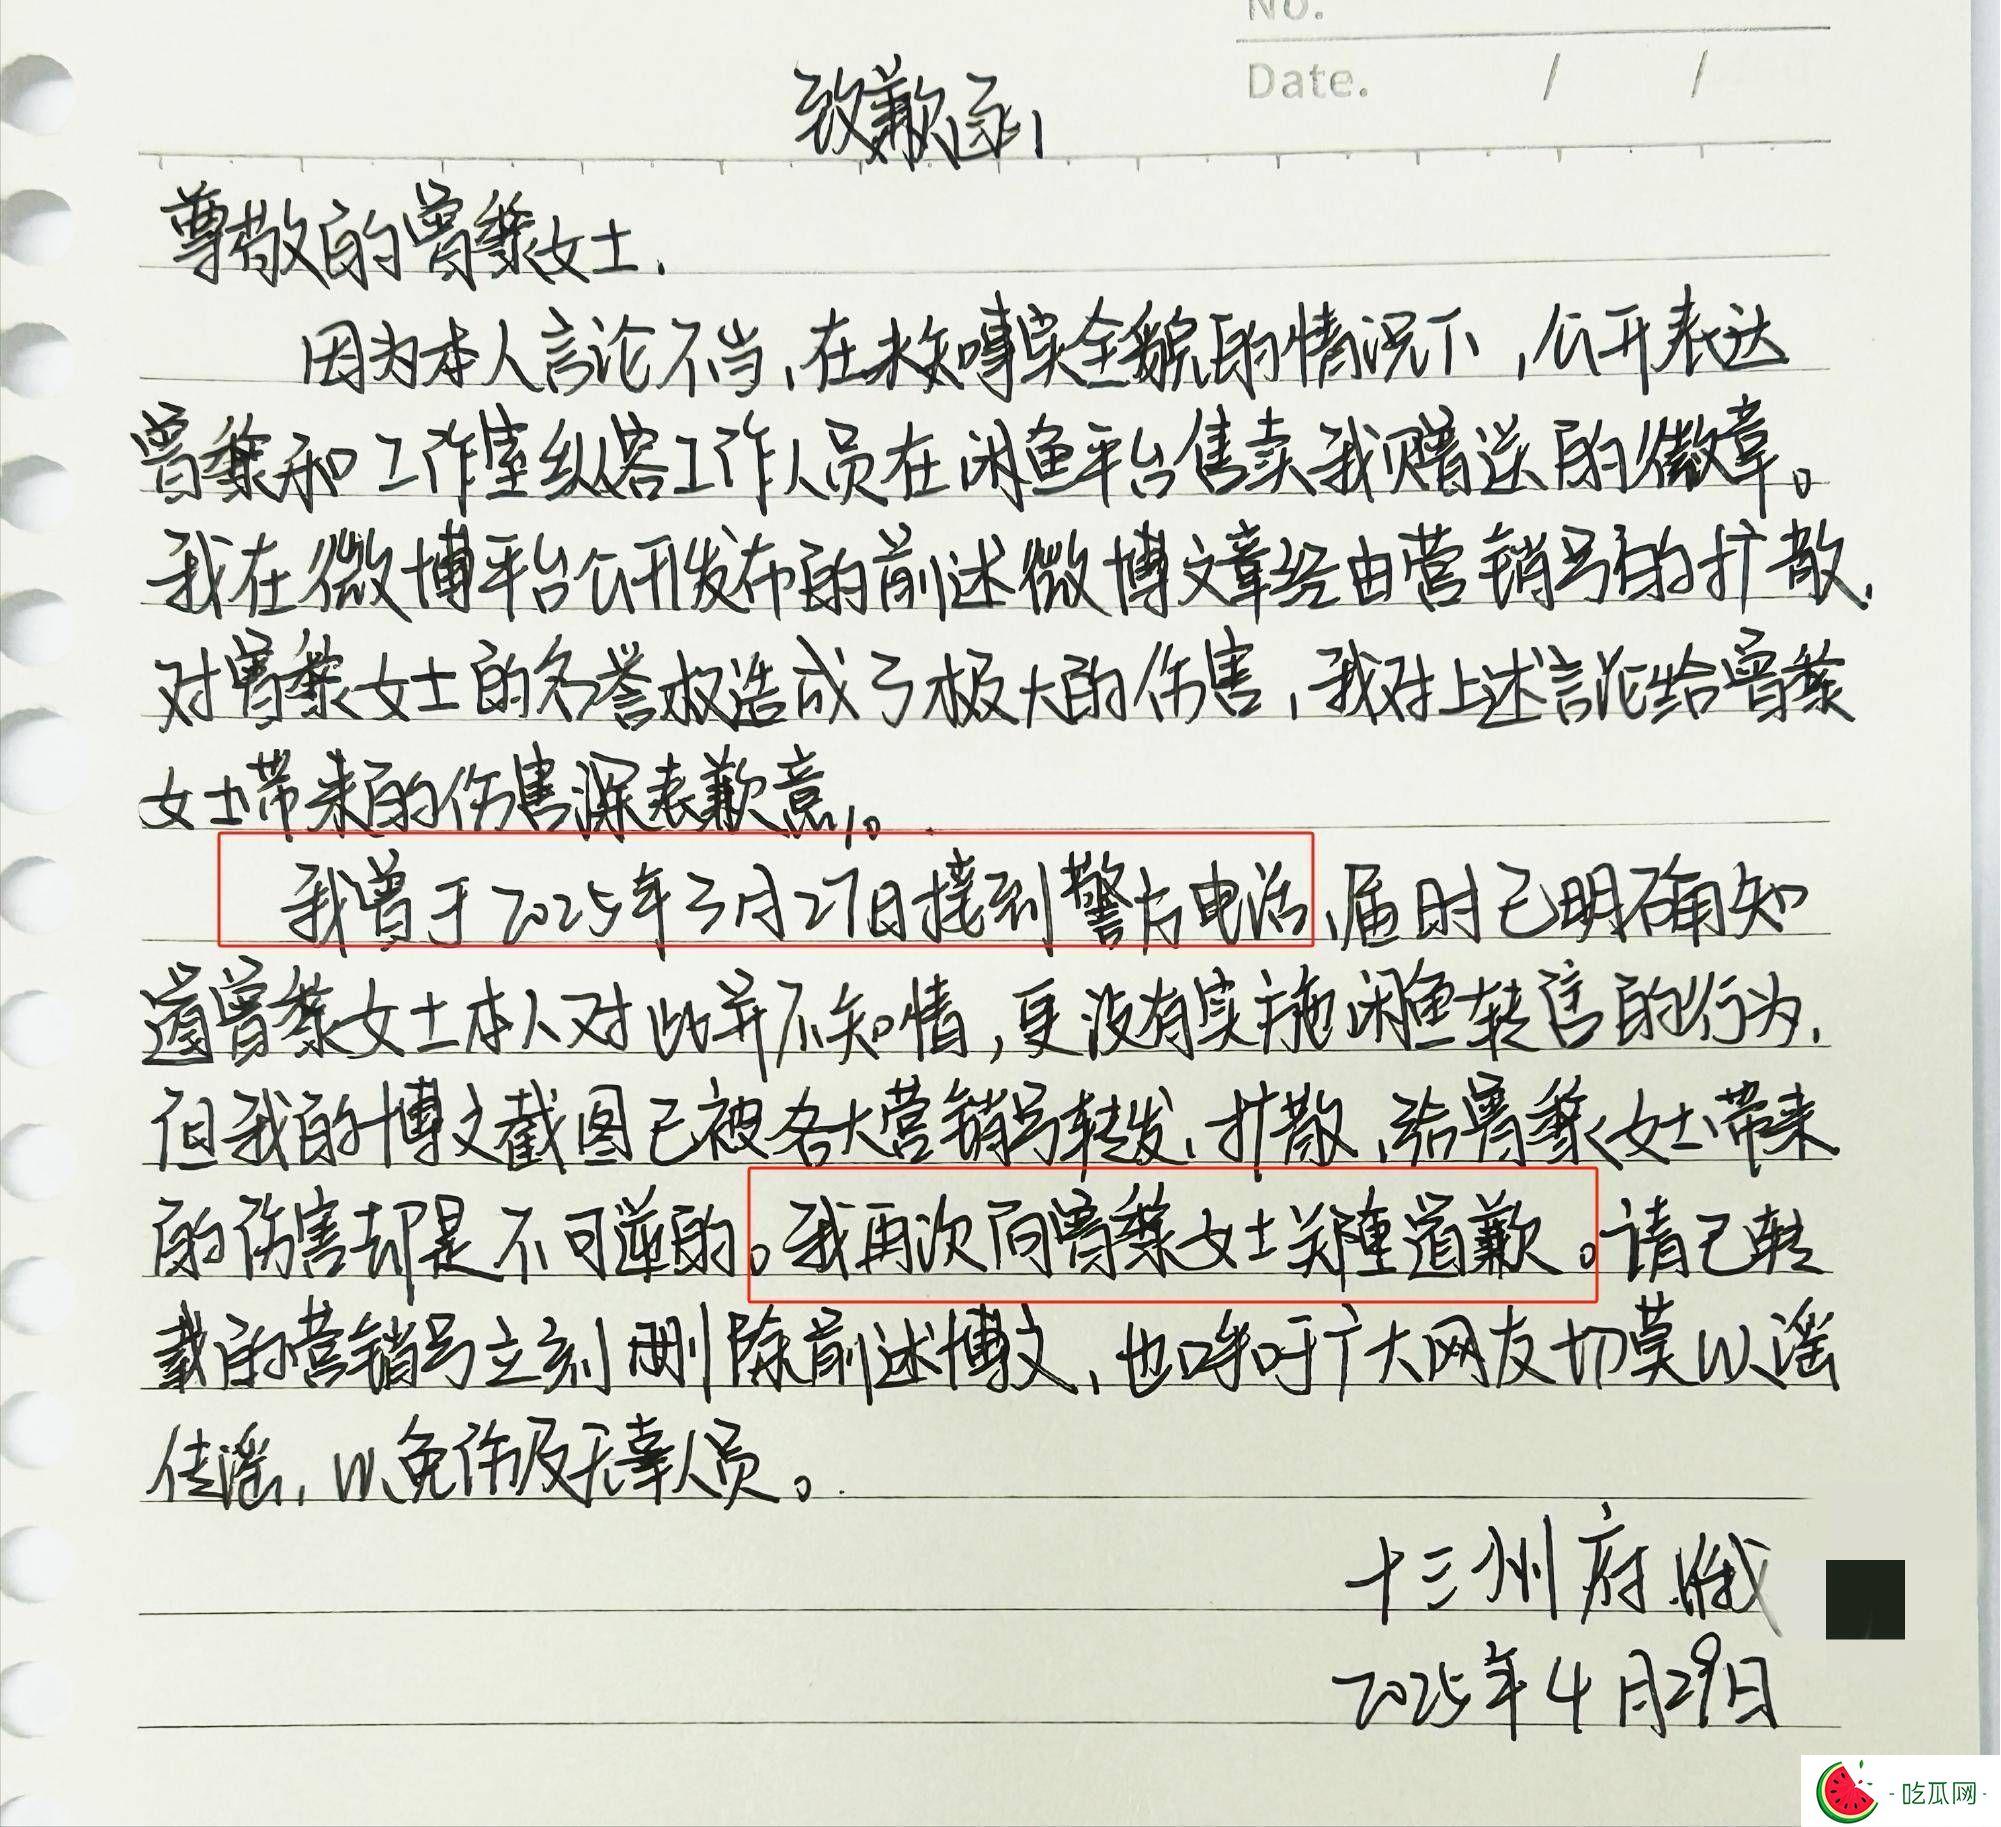 No.
Date. / /
致歉函
尊敬的曾黎女士,
因为本人言论不当,在未知事实全貌的情况下,公开表达
曾黎和工作室纵容工作人员在闲鱼平台售卖我赠送的徽章。
我在微博平台公开发布的前述微博文章经由营销号的扩散,
对曾黎女士的名誉权造成了极大的伤害,我对上述言论给曾黎
女士带来的伤害深表歉意。
我曾于2025年3月27日接到警方电话,届时已明确知
道曾黎女士本人对此并不知情,更没有实施闲鱼转售的行为,
但我的博文截图已被各大营销号转发,扩散,给曾黎女士带来
的伤害却是不可逆的。我再次向曾黎女士郑重道歉。请已转
载的营销号立刻删除前述博文,也呼吁广大网友切莫以谣
传谣,以免伤及无辜人员。
十三州府
2025年4月29日
·吃瓜网·